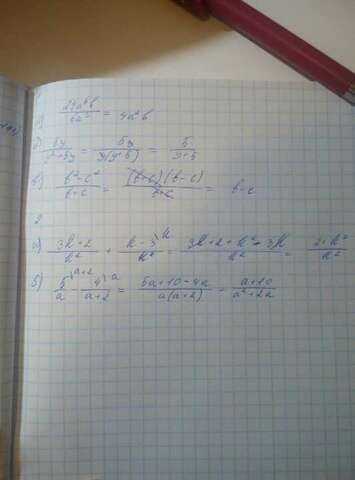 а) 24a³b / 6a² = 4a²b
б) 5y / y²+5y = 5y / y(y+5) = 5 / y+5
в) b²-c² / b+c = (b+c)(b-c) / b+c = b-c
2
а) 3k+2 / k² + k-3 / k = 3k+2+k²-3k / k² = 2+k² / k²
б) 5 / a - 4 / a+2 = 5a+10-4a / a(a+2) = a+10 / a²+2a